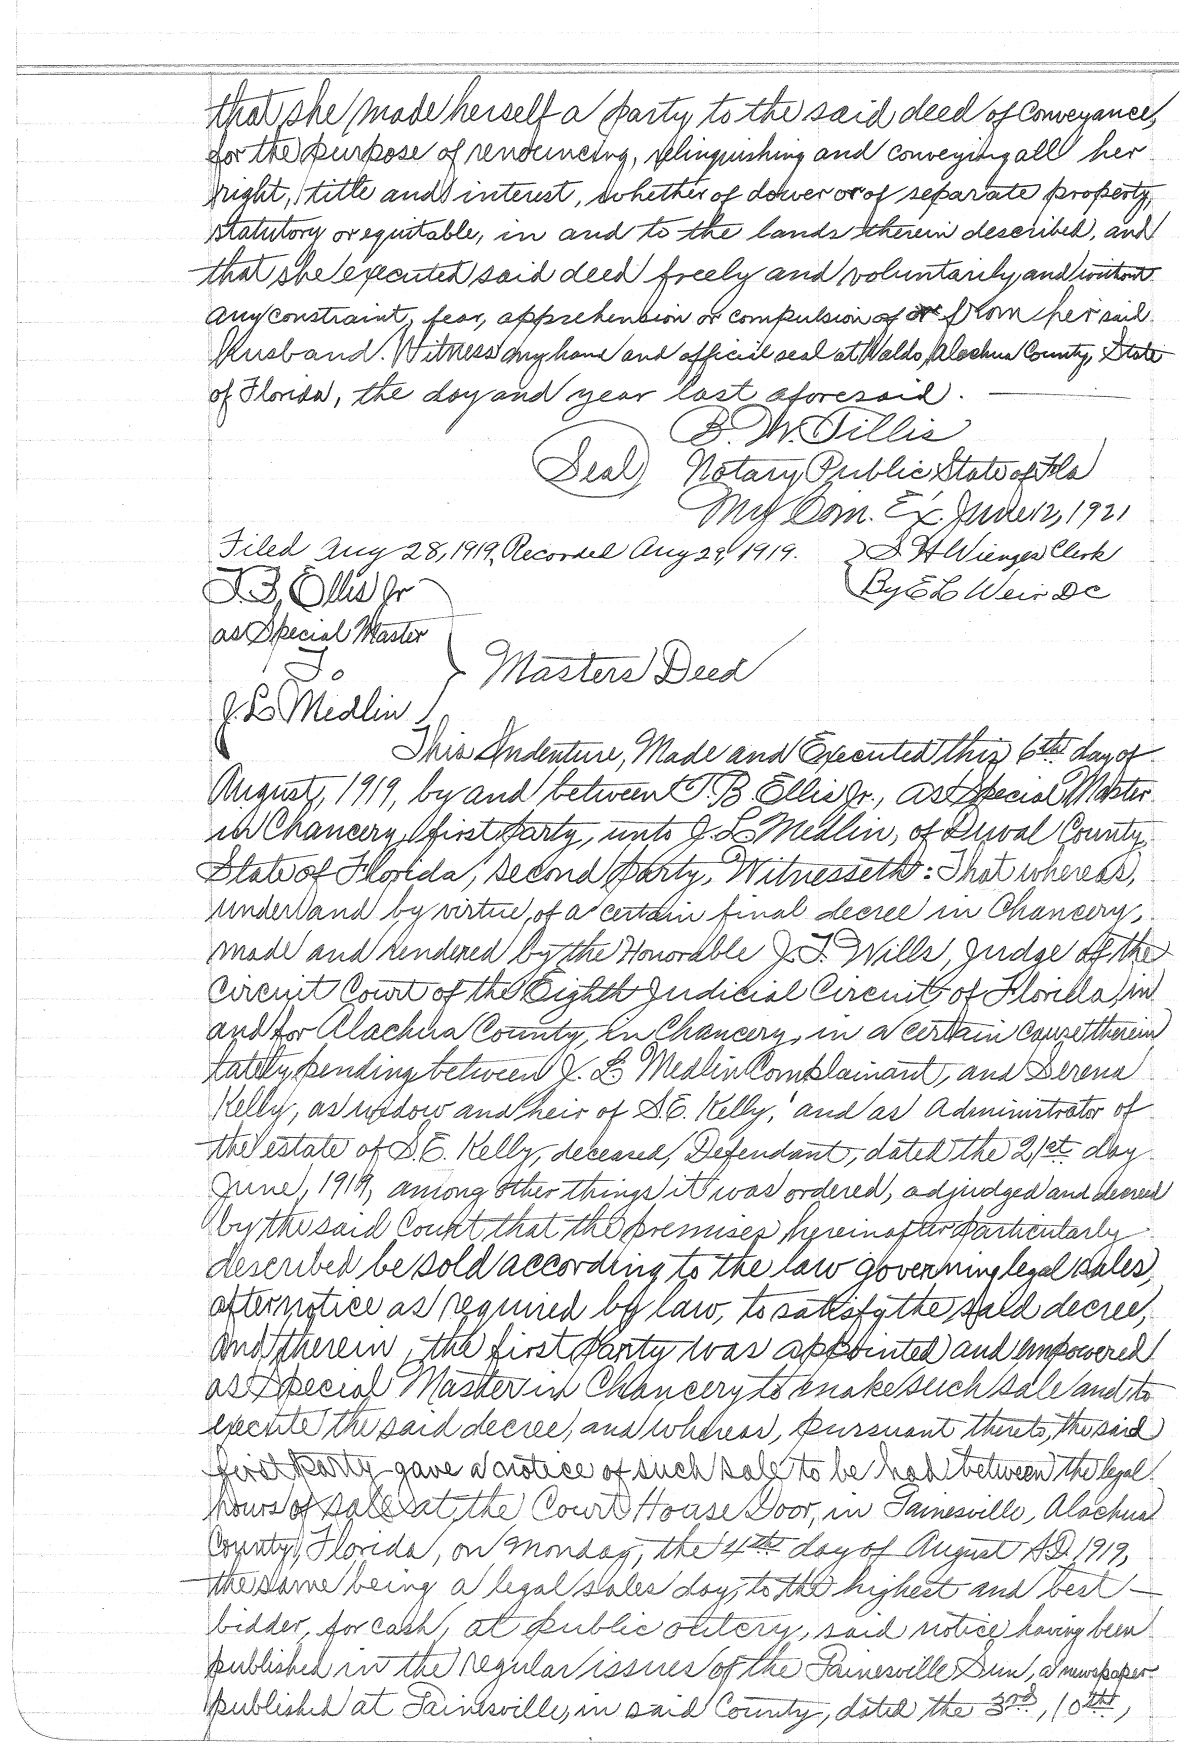 that she made herself a party to the said deed of conveyance,
for the purpose of renouncing, relinquishing and conveying all her
right, title and interest, whether of dower or of separate property,
statutory or equitable, in and to the lands therein described, and
that she executed said deed freely and voluntarily and without
any constraint, fear, apprehension or compulsion of or from her said
husband. Witness my hand and official seal at Waldo, Alachua County, State
of Florida, the day and year last aforesaid.
B. W. Tillis
(Seal) Notary Public State of Fla
My Com. Ex. June 12, 1921
Filed Aug 28, 1919, Recorded Aug 29, 1919. S. H. Wienges Clerk
By E L Weir DC
T. B. Ellis Jr
as Special Master
To
Masters Deed
J. L Medlin
This Indenture, Made and Executed this 6th day of
August, 1919, by and between T. B. Ellis Jr., as Special Master
in Chancery, first party, unto J. L Medlin, of Duval County,
State of Florida, second party, Witnesseth: That whereas,
under and by virtue, of a certain final decree in Chancery,
made and rendered by the Honorable J. T. Wills, Judge of the
Circuit Court of the Eighth Judicial Circuit of Florida, in
and for Alachua County, in Chancery, in a certain cause therein
lately pending between J. L Medlin Complainant, and Serena
Kelly, as widow and heir of S. E. Kelly, and as Administrator of
the estate of S. E. Kelly, deceased, Defendant, dated the 21st day
June, 1919, among other things it was ordered, adjudged and decreed
by the said Court that the premises hereinafter particularly
described be sold according to the law governing legal sales,
after notice as required by law, to satisfy the said decree,
and therein, the first party was appointed and empowered
as Special Master in Chancery to make such sale and to
execute the said decree, and whereas, pursuant thereto, the said
first party gave a notice of such sale to be had between the legal
hours of sale at the Court House Door, in Gainesville, Alachua
County, Florida, on Monday, the 4th day of August A.D. 1919,
the same being a legal sales day, to the highest and best —
bidder, for cash, at public outcry, said notice having been
published in the regular issues of the Gainesville Sun, a newspaper
published at Gainesville, in said County, dated the 3rd, 10th,